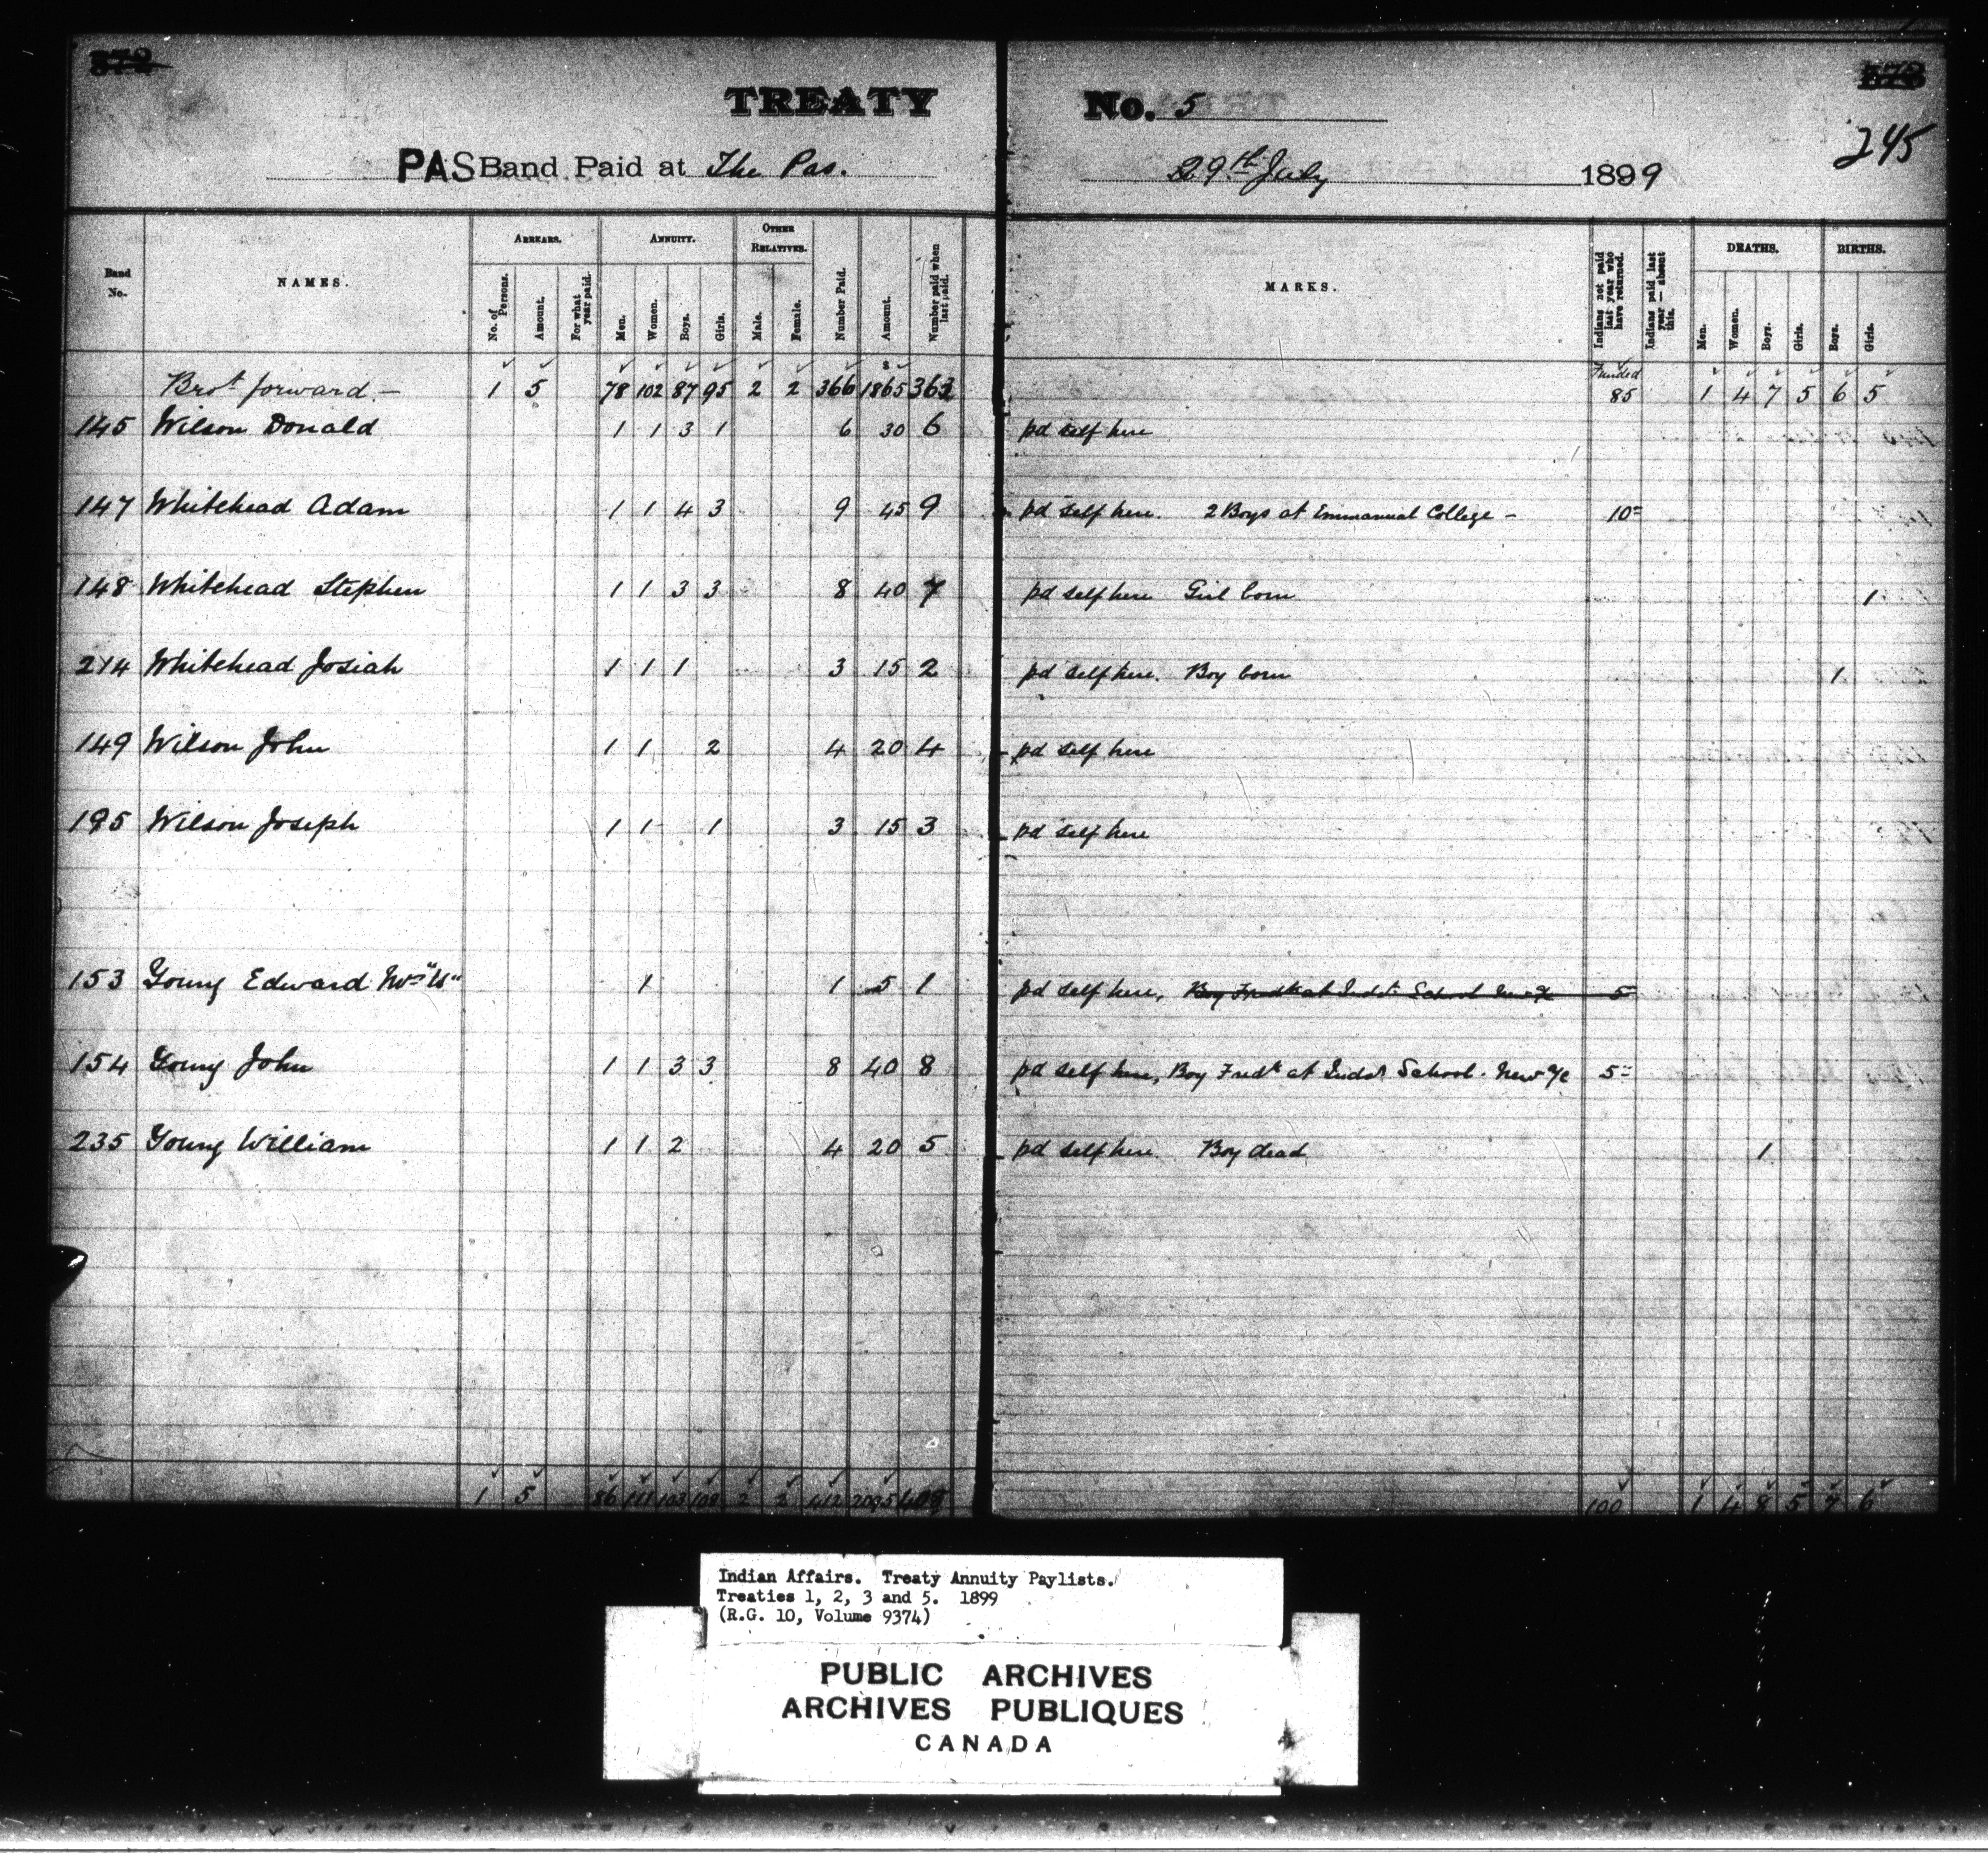 TREATY No. 5
245
PAS Band Paid at The Pas. 29th July 1899
Band No. NAMES. ARREARS. ANNUITY. OTHER RELATIVES. Number Paid. Amount. Number paid when last paid. MARKS. Indians not paid last year who have returned. Indians paid last year — absent this. DEATHS. BIRTHS.
No. of Persons. Amount. For what year paid. Men. Women. Boys. Girls. Male. Female. Men. Women. Boys. Girls. Boys. Girls.
$ Funded
Brot forward.— 1 5 78 102 87 95 2 2 366 1865 363 85 1 4 7 5 6 5
145 Wilson Donald 1 1 3 1 6 30 6 pd self here
147 Whitehead Adam 1 1 4 3 9 45 9 pd self here. 2 Boys at Emmanual College – 10=
148 Whitehead Stephen 1 1 3 3 8 40 7 pd self here Girl born 1
214 Whitehead Josiah 1 1 1 3 15 2 pd self here. Boy born 1
149 Wilson John 1 1 2 4 20 4 pd self here
195 Wilson Joseph 1 1 1 3 15 3 pd self here
153 Young Edward 1 1 5 1 pd self here, Boy Fredk at Indst School 5
154 Young John 1 1 3 3 8 40 8 pd self here, Boy Fredk at Indst School. 5=
235 Young William 1 1 2 4 20 5 pd self here Boy dead 1
1 5 86 111 103 108 2 2 412 2095 408 100 1 4 8 5 7 6
Indian Affairs. Treaty Annuity Paylists.
Treaties 1, 2, 3 and 5. 1899
(R.G. 10, Volume 9374)
PUBLIC ARCHIVES
ARCHIVES PUBLIQUES
CANADA